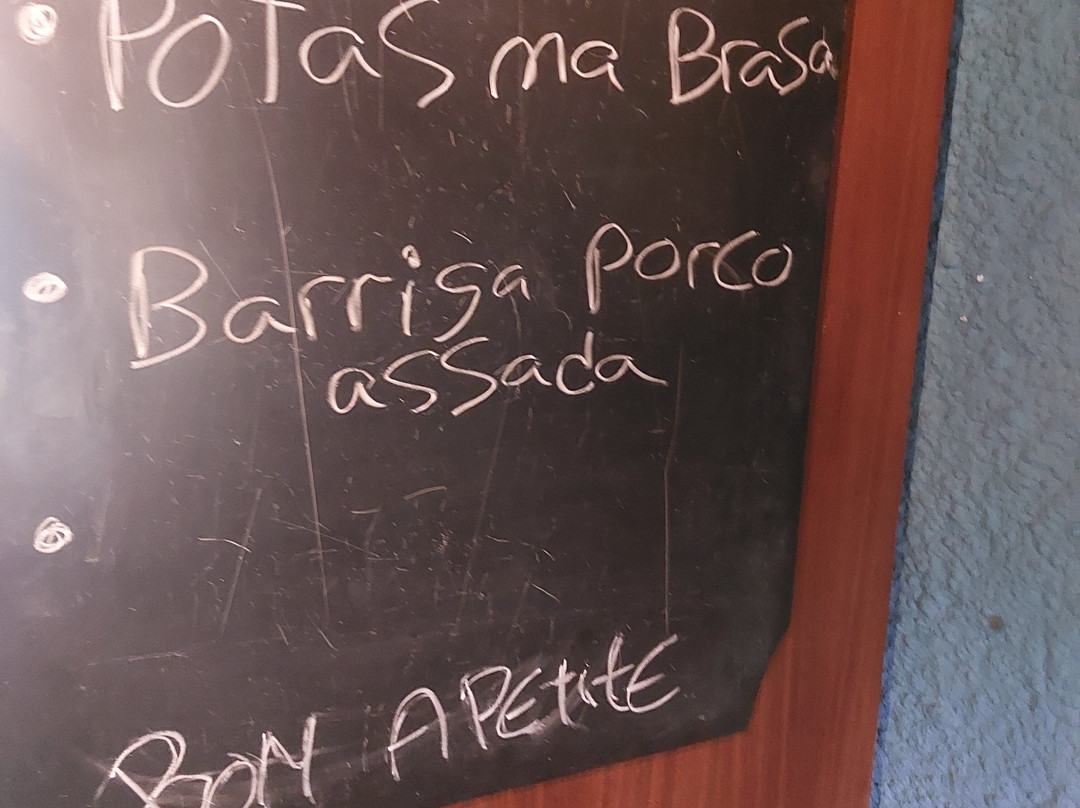 POTas na Brasa
Barriga porco
assada
BOM APEtitE